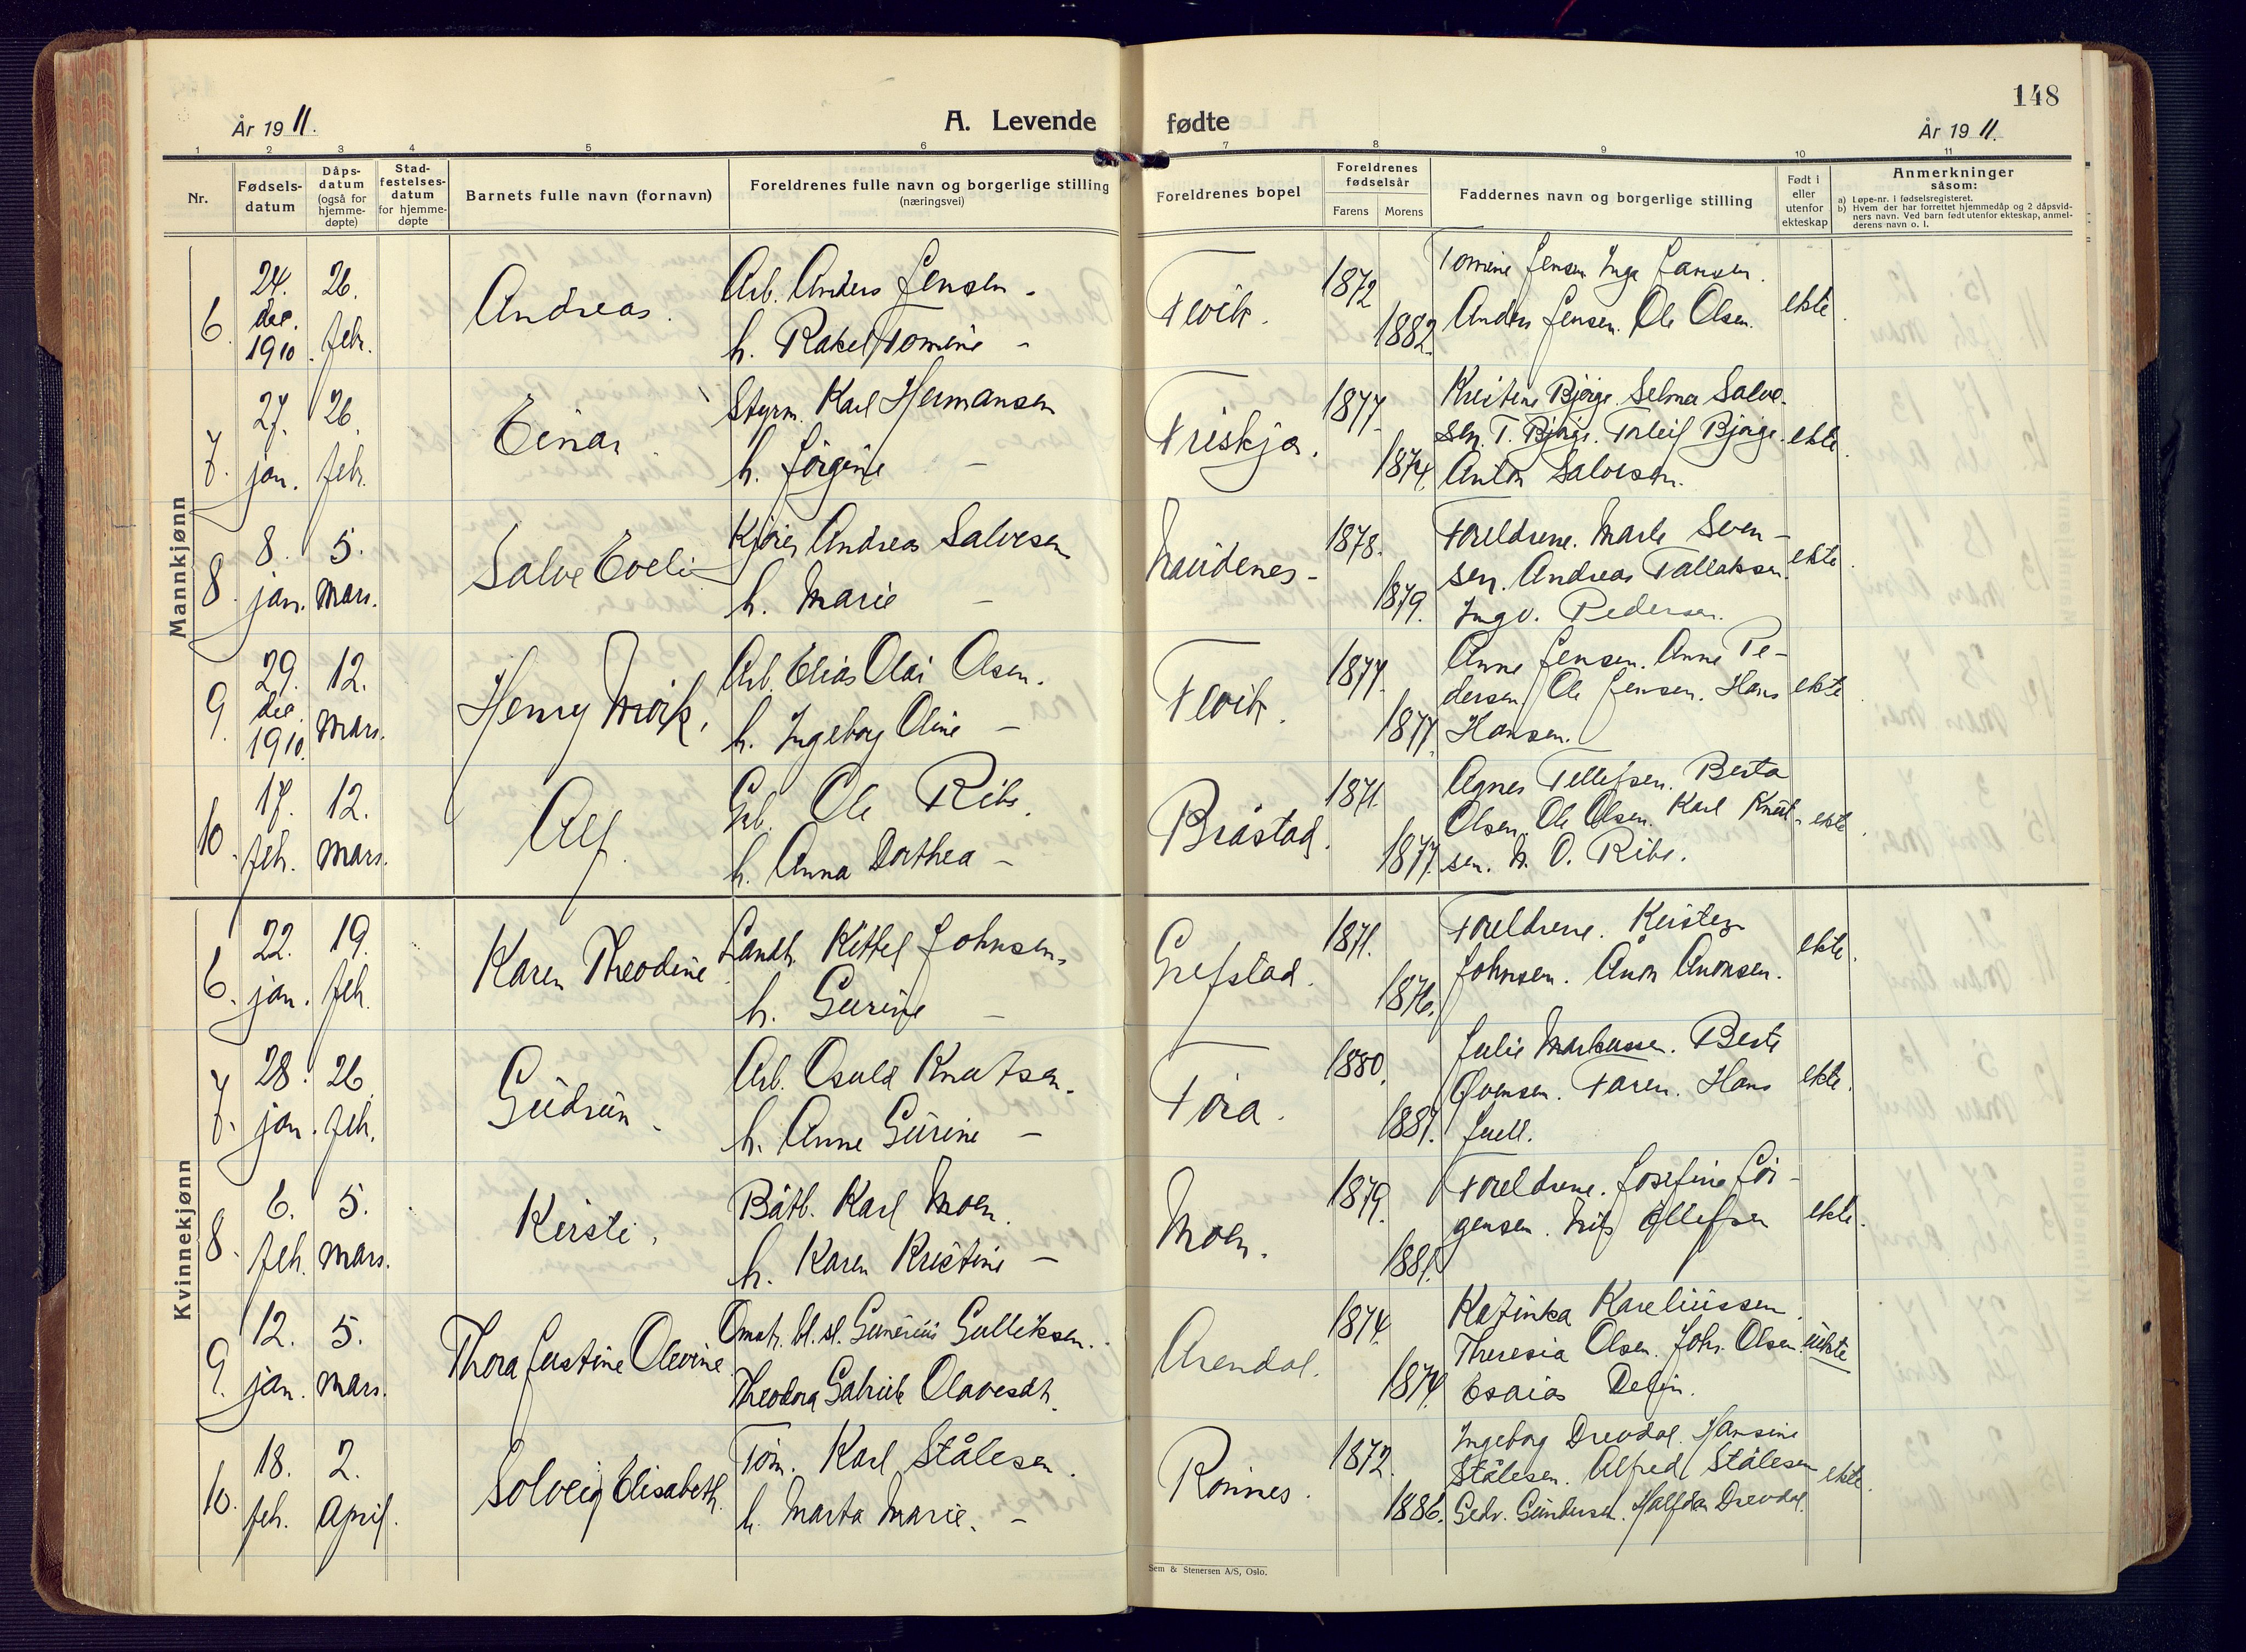 148
År 1911.
A. Levende fødte
År 1911.
1 2 3 4 5 6 7 8 9 10 11
Nr.
Fødsels-
datum
Dåps-
datum
(også for
hjemme-
døpte)
Stad-
festelses-
datum
for hjemme-
døpte
Barnets fulle navn (fornavn)
Foreldrenes fulle navn og borgerlige stilling
(næringsvei)
Foreldrenes bopel
Foreldrenes
fødselsår
Farens Morens
Faddernes navn og borgerlige stilling
Født i
eller
utenfor
ekteskap
Anmerkninger
såsom:
a) Løpe-nr. i fødselsregisteret.
b) Hvem der har forrettet hjemmedåp og 2 dåpsvid-
ners navn. Ved barn født utenfor ekteskap, anmel-
derens navn o. l.
Mannkjønn
6. 24. dec. 1910. 26. febr.
Andreas.
Arb. Anders Jensen -
h. Rakel Tomine -
Fevik. 1872 1882.
Tomine Jensen Inga Jansen.
Anders Jensen. Ole Olsen.
ekte
7. 27. jan. 26. febr.
Einar
Styrm. Karl Hermansen
h. Jörgine -
1877. 1874.
Kristine Bjorge. Selma Salve-
sen. T. Bjorge. Torleif Bjorge.
Anton Salvesen.
ekte.
8. 8. jan. 5. mars.
Salve
Andreas Salvesen
h. Marie -
1878. 1879.
Foreldrene. Marte Sven-
sen. Andreas Tallaksen.
Ingv. Pedersen.
ekte.
9. 29. dec. 1910. 12. mars.
Henry Mörk.
Arb. Elias Olai Olsen.
h. Ingeborg Oline -
Fevik. 1877. 1877.
Anne Jensen. Anne Pe-
dersen. Ole Jensen. Hans
Hansen.
ekte.
10. 17. feb. 12. mars.
Alf.
Ole Ribe.
h. Anna Dorthea -
Bråstad. 1871. 1877.
Agnes Tellefsen. Berta
Olsen. Ole Olsen. Karl Knut-
sen. N. O. Ribe.
ekte.
Kvinnekjønn
6. 22. jan. 19. feb.
Karen Theodine.
Landh. Kittel Johnsen.
h. Gurine -
Grefstad. 1871. 1876.
Foreldrene. Kirsten
Johnsen. Aanon Aanonsen.
ekte.
7. 28. jan. 26. feb.
Gudrun.
Arb. Osuld Knutsen.
h. Anne Gurine -
Föra. 1880. 1881.
Julie Markussen. Berte
Evensen. Faren. Hans
Juell.
ekte.
8. 6. feb. 5. mars.
Kirsti.
Båtb. Karl Moen.
h. Karen Kristine -
Moen. 1879. 1881.
Foreldrene. Josefine Jör-
gensen. Nils Ellefsen
ekte.
9. 12. jan. 5. mars.
Thora Justine Olevine.
Omstr. bl.sl. Gunerius Gulliksen.
Theodora Gabriele Olavesdt.
Arendal. 1874. 1874.
Katinka Kareliussen.
Theresia Olsen. Johs. Olsen.
Esaias Delfin.
uekte
10. 18. feb. 2. April.
Solveig Elisabeth.
Töm. Karl Stålesen.
h. Marta Marie. -
Rönnes. 1872. 1886.
Ingeborg Drevdal. Hansine
Stålesen. Alfred Stålesen
Gedv. Gundersen. Halfdan Drevdal.
ekte.
Sem & Stenersen A/S, Oslo.